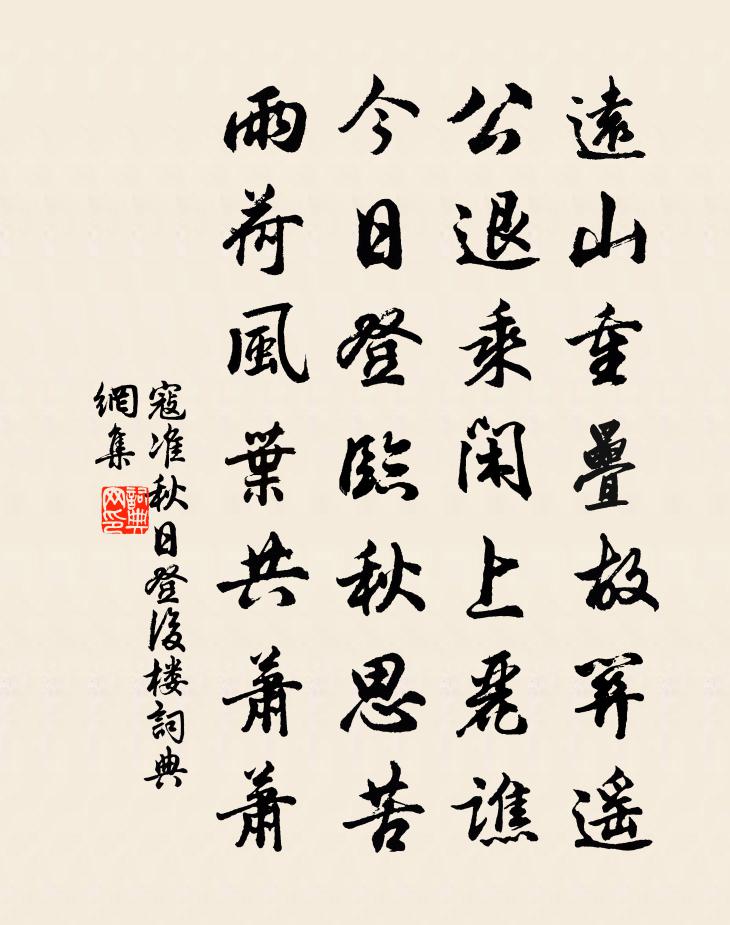 遠山重疊故關遥
公退乘閑上麗譙
今日登臨秋思苦
雨荷風葉共蕭蕭
寇准秋日登後楼詞典
網集
詞典
网印